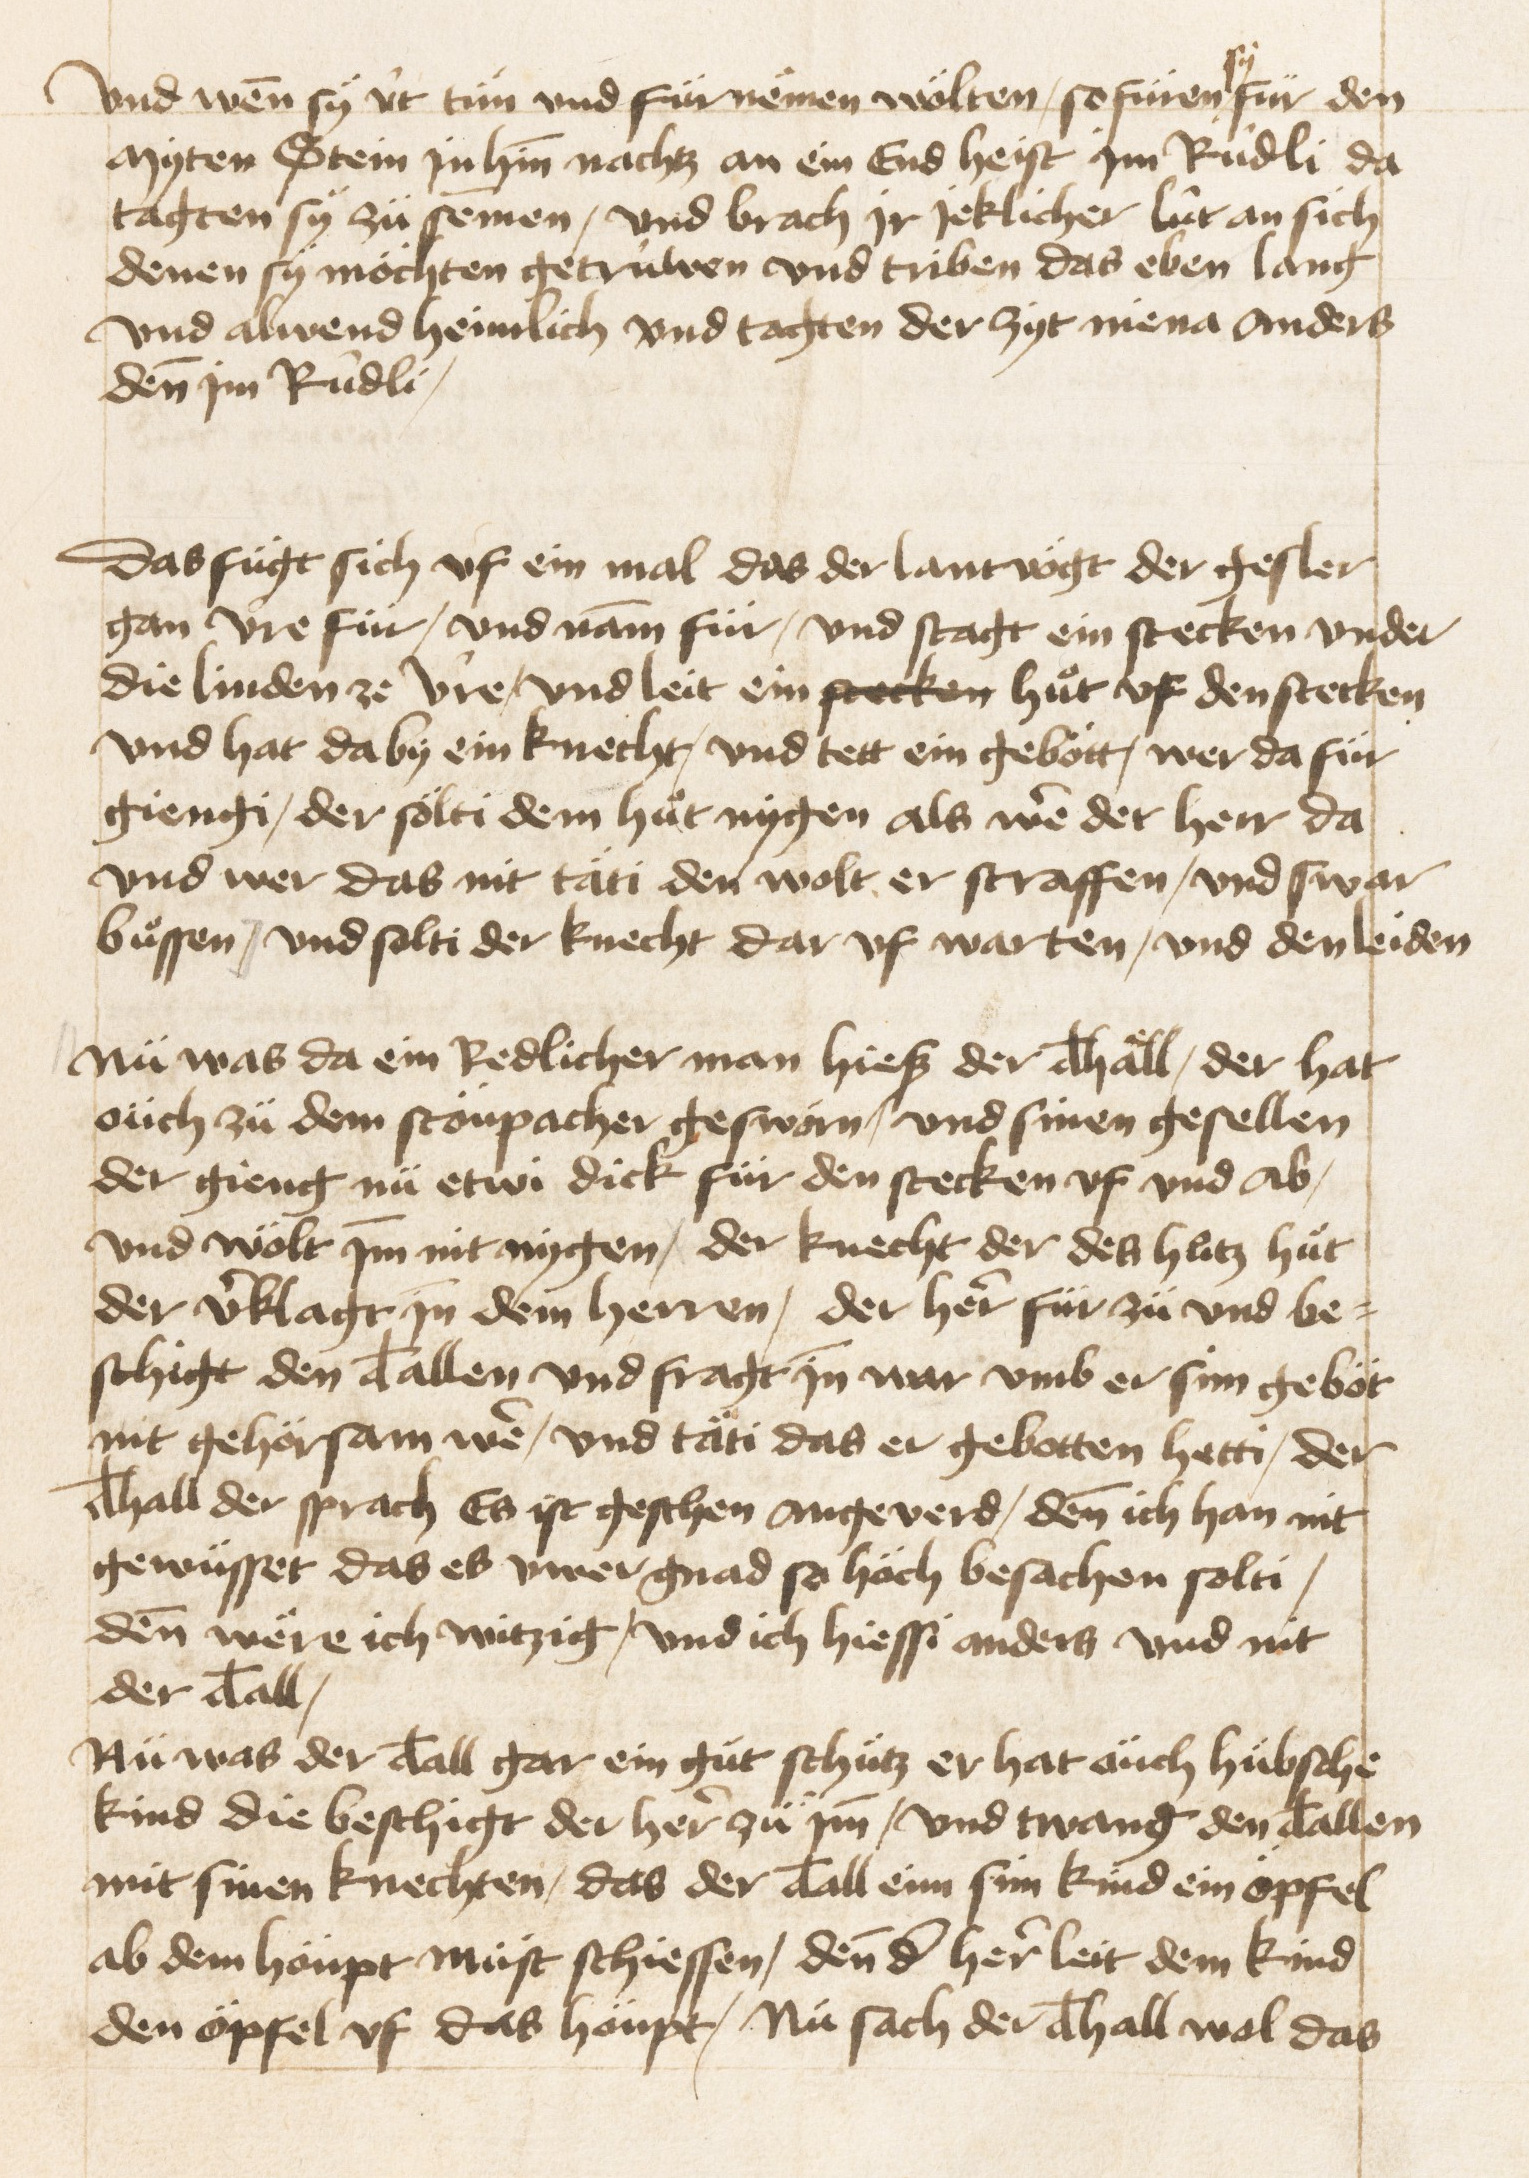 Vnd wen̄ sÿ v́t tu̍n vnd fürnëmen wölten / so fu̍ren sÿ für den
Myten Stein jn hin̄ nachtz an ein End heist jm Rúdli da
tagten sÿ zü semen / vnd brach jr jeklicher lút an sich
denen sÿ möchten getrúwen vnd triben das eben lang
vnd alwend heimlich vnd tagten der zÿt niena anders
den̄ jm Rúdli /
Das fügt sich vf ein mal das der lantvögt der gesler
gan vre für / vnd nam̄ für / vnd stagt ein stecken vnder
die linden ze v́re / vnd leit ein stecken hůt vf den stecken
vnd hat da bÿ ein knecht / vnd tett ein gebött / wer da für
giengi / der sölti dem hůt nÿgen als wē der herr da
vnd wer das nit täti den wolt er straffen / vnd swar
bůssen / vnd solti der knecht dar vf warten / vnd den leiden
Nü was da ein Redlicher man hiesz der Thäll / der hat
oüch zü dem stöupacher geswörn / vnd sinen gesellen
der gieng nü etwi dick für den stecken vf vnd ab /
vnd wölt jm̄ nit nÿgen / der knecht der des hutz hůt
der v̄klagt jn̄ dem herren / der her̄ für zü vnd be=
schigt den Tallen vnd fragt jn̄ war vmb er sim geböt
nit gehörsam wē / vnd täti das er gebotten hetti / der
Thall der sprach Es ist geschen angeverd / den̄ ich han nit
gewüsset das es vwer gnad so höch besachen solti /
den̄ wëre ich witzig / vnd ich hiessi anders vnd nit
der Tall /
Nü was der Tall gar ein gůt schütz er hat öüch hübsche
kind die beschigt der her̄ zü jm̄ / vnd twang den Tallen
mit sinen knechten / das der Tall eim sim kind ein öpfel
ab dem höupt müst schiessen / den̄ d̄ her̄ leit dem kind
den öpfel vf das höupt / Nü sach der Thall wol das